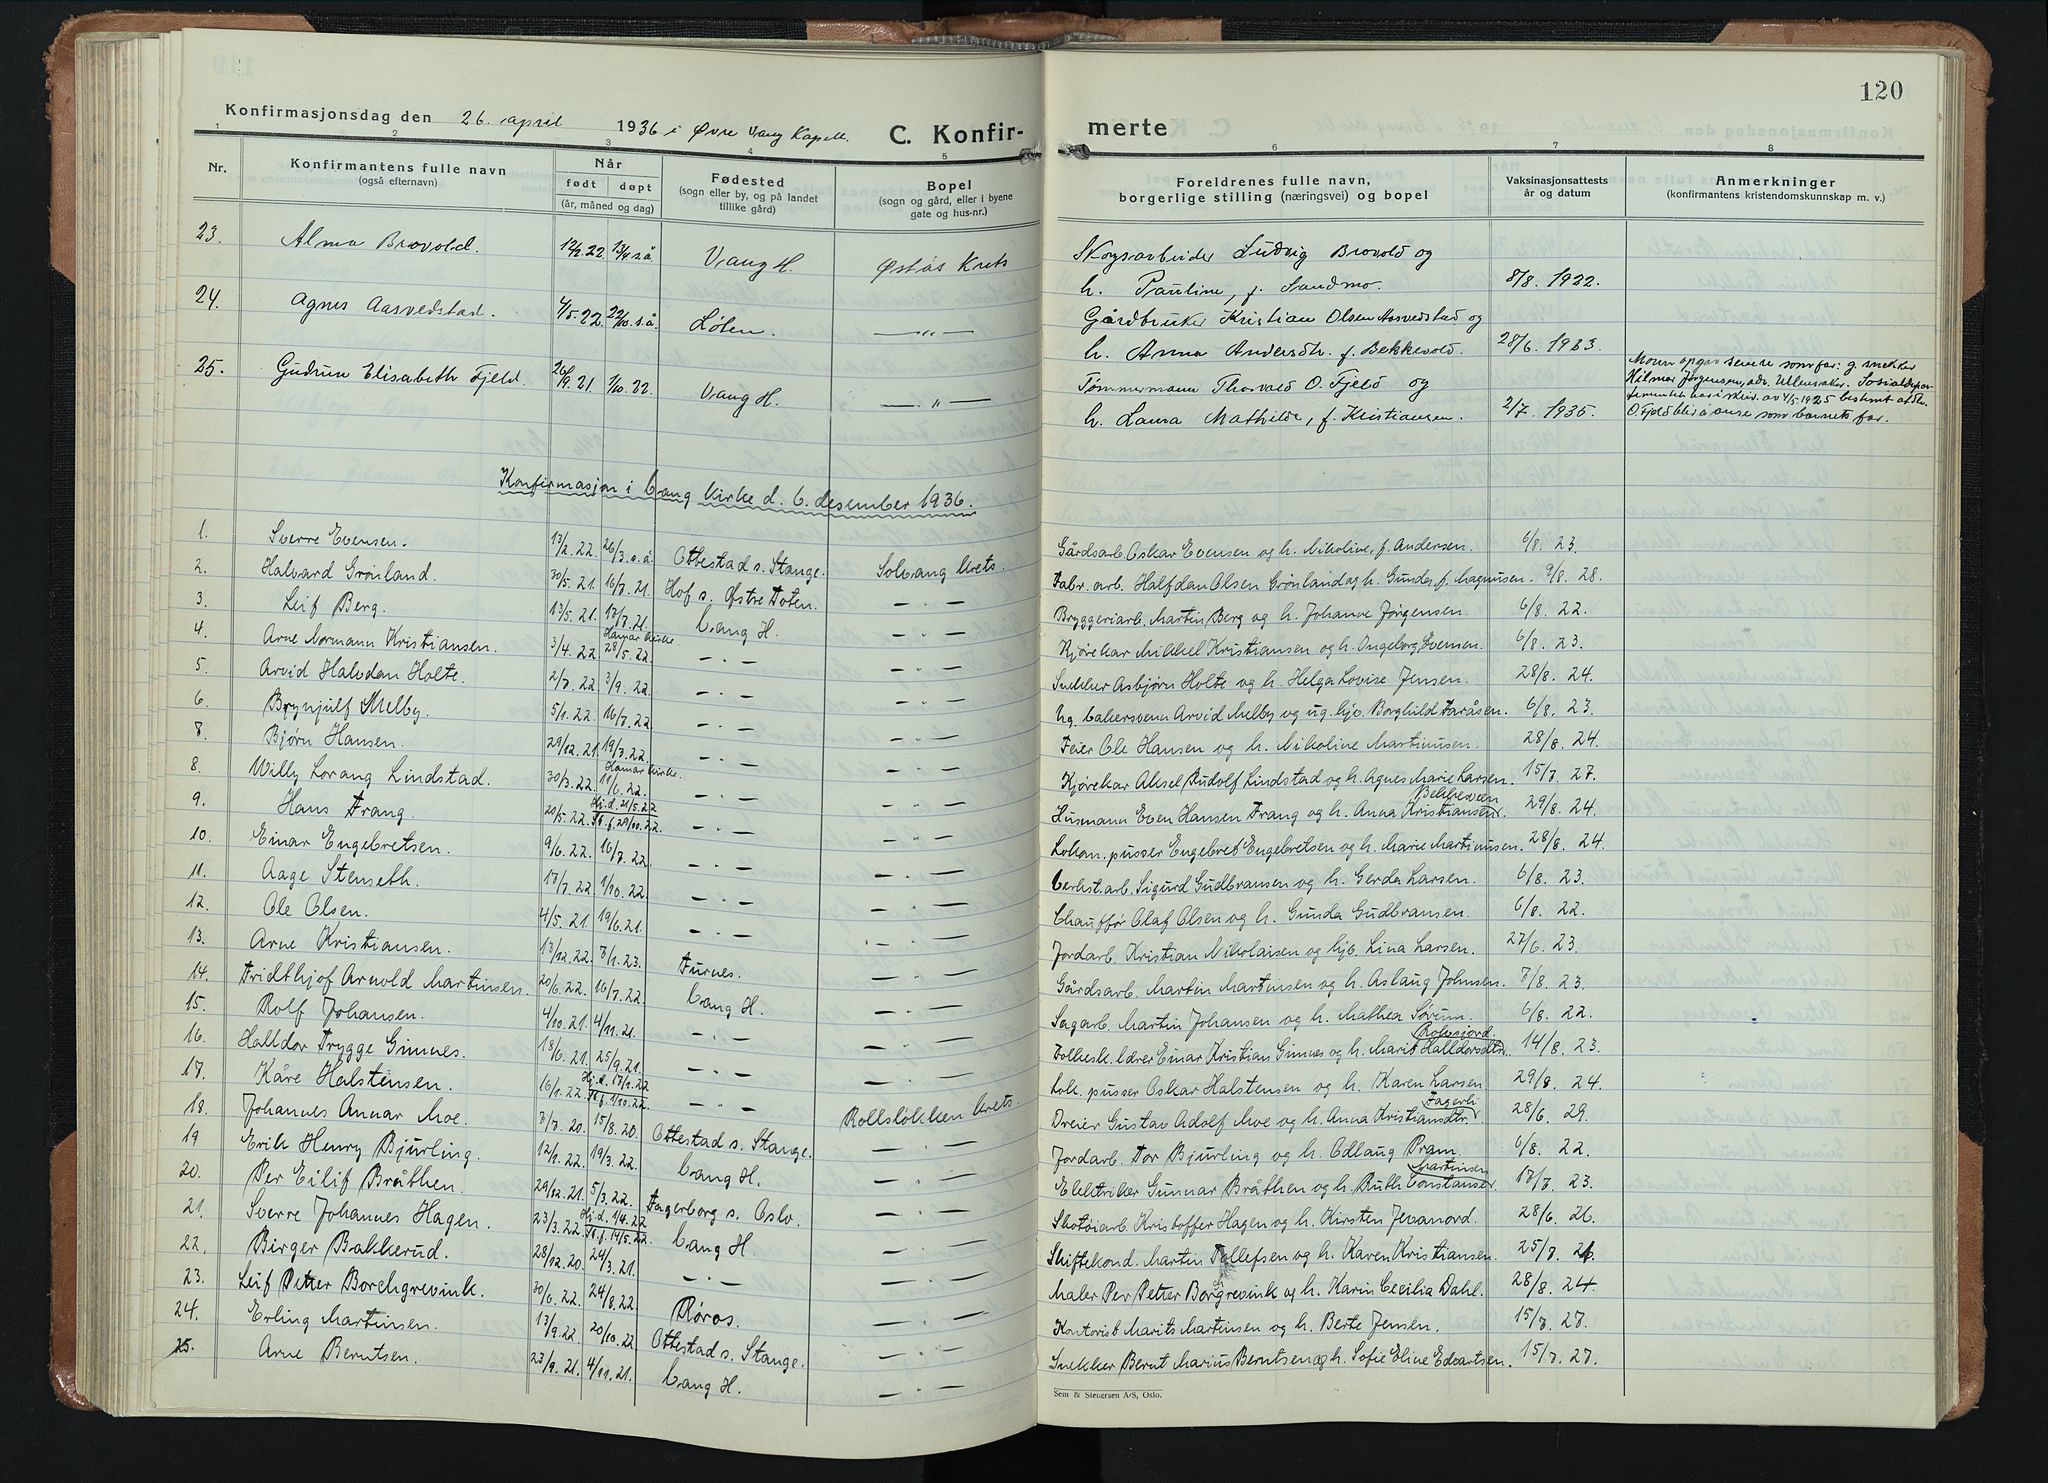 120
Konfirmasjonsdag den 26. april 1936 i Øvre Vang Kapell. C. Konfir- merte
1 2 3 4 5 6 7 8
Nr. Konfirmantens fulle navn (også efternavn) Når født døpt (år, måned og dag) Fødested (sogn eller by, og på landet tillike gård) Bopel (sogn og gård, eller i byene gate og hus-nr.) Foreldrenes fulle navn, borgerlige stilling (næringsvei) og bopel Vaksinasjonsattests år og datum Anmerkninger (konfirmantens kristendomskunnskap m. v.)
23. Alma Brovold. 12/2 22. 17/4 s.å. Vang H. Østås Krets Skogsarbeider Ludvig Brovold og
h. Pauline, f. Sandmo. 8/8. 1922.
24. Agnes Aasvedstad. 4/5. 22. 22/10. s.å. Løten. — " — Gårdbruker Kristian Olsen Aasvedstad og
h. Anna Andersdtr. f. Bekkevold. 28/6. 1923.
25. Gudrun Elisabeth Fjeld. 26/9. 21. 1/10. 22. Vang H. — " — Tømmermann Thorvald O. Fjeld og
h. Laura Mathilde, f. Kristiansen. 2/7. 1935.
Moren opgav senere som far: g. snekker
Hilmar Jørgensen, adr. Ullensaker. Sosialdepar-
tementet har i skriv. av 4/5. 1925 bestemt at Th.
O. Fjeld blir å anse som barnets far.
Konfirmasjon i Vang kirke d. 6. desember 1936.
1. Sverre Evensen. 13/2. 22. 26/3. s.å. Ottestad s. Stange. Solvang krets. Gårdsarb. Oskar Evensen og h. Nikoline, f. Andersen. 6/8. 23.
2. Halvard Grønland. 30/5. 21. 16/7. 21. Hof s. Østre Toten. — " — Fabr. arb. Halfdan Olsen Grønland og h. Gunda, f. Magnusen. 9/8. 28.
3. Leif Berg. 13/5. 21. 17/7. 21. Vang H. — " — Bryggeriarb. Martin Berg og h. Johanne Jørgensen. 6/8. 22.
4. Arne Normann Kristiansen. 3/4. 22. Hamar kirke 28/5. 22. — " — — " — Kjørekar Mikkel Kristiansen og h. Ingeborg Evensen. 6/8. 23.
5. Arvid Halvdan Holte. 2/7. 22. 3/9. 22. — " — — " — Snekker Asbjørn Holte og h. Helga Lovise Jensen. 28/8. 24.
6. Brynjulf Melby. 5/1. 22. 16/7. 22. — " — — " — Ug. bakersvenn Arvid Melby og ug. hjv. Borghild Faråsen. 6/8. 23.
8. Bjørn Hansen. 29/12. 21. 19/3. 22. — " — — " — Feier Ole Hansen og h. Nikoline Martinusen. 28/8. 24.
8. Willy Lorang Lindstad. 30/3. 22. Hamar kirke 11/6. 22. — " — — " — Kjørekar Aksel Rudolf Lindstad og h. Agnes Marie Larsen. 15/7. 27.
9. Hans Frang. 20/5. 22. Hj.d. 21/5. 22 St. f. 29/10. 22. — " — — " — Husmann Even Hansen Frang og h. Anna Kristiansen Bekkesveen. 29/8. 24.
10. Einar Engebretsen. 9/6. 22. 16/7. 22. — " — — " — Lokom. pusser Engebret Engebretsen og h. Marie Martinusen. 28/8. 24.
11. Aage Stenseth. 17/7. 22. 1/10. 22. — " — — " — Verkst. arb. Sigurd Gudbransen og h. Gerda Larsen. 6/8. 23.
12. Ole Olsen. 4/5. 21. 19/6. 21. — " — — " — Chauffør Olaf Olsen og h. Gunda Gudbransen. 6/8. 22.
13. Arne Kristiansen. 17/12. 22. 7/1. 23. Furnes. — " — Jordarb. Kristian Nikolaisen og hjv. Lina Larsen. 27/6. 23.
14. Fridthjof Arnold Martinsen. 20/6. 22. 16/7. 22. Vang H. — " — Gårdsarb. Martin Martinsen og h. Aslaug Johnsen. 7/8. 23.
15. Rolf Johansen. 4/10. 21. 4/11. 21. — " — — " — Sagarb. Martin Johansen og h. Mathea Sørum. 6/8. 22.
16. Halldor Trygge Gimnes. 18/6. 21. 25/9. 21. — " — — " — Folkesk. lærer Einar Kristian Gimnes og h. Marit Halldorsdtr. 14/8. 23.
17. Kåre Halstensen. 16/1. 22. Hj.d. 17/1. 22 St. f. 1/10. 22. — " — — " — Lok. pusser Oskar Halstensen og h. Karen Larsen 29/8. 24.
18. Johannes Annar Moe. 3/7. 20. 15/8. 20. Ottestad s. Stange. Rollsløkken krets Dreier Gustav Adolf Moe og h. Anna Kristiansdtr. Fagerli 28/6. 29.
19 Erik Henry Bjurling. 12/1. 22. 19/3. 22. Vang H. — " — Jordarb. Tor Bjurling og h. Odlaug Pram. 6/8. 22.
20. Per Eilif Bråthen. 29/12. 21. 5/3. 22. Fagerborg s. Oslo. — " — Elektriker Gunnar Bråthen og h. Ruth Constanse Martinsen. 17/7. 23.
21. Sverre Johannes Hagen. 23/3. 22. Hj.d. 1/4. 22 St. f. 14/5. 22. Vang H. — " — Skotøiarb. Kristoffer Hagen og h. Kirsten Jevanord. 28/6. 26.
22. Birger Bakkerud. 28/12. 20. 24/3. 21. — " — — " — Skiftekond. Martin Tollefsen og h. Karen Kristiansen. 25/7. 21.
23. Leif Petter Borchgrevink. 30/6. 22. 24/8. 22. Røros. — " — Maler Per Petter Borgrevink og h. Karin Cecilia Dahl. 28/8. 24
24. Erling Martinsen. 13/9. 22. 20/10. 22 Ottestad s. Stange. — " — Kontorist Marits Martinsen og h. Berte Jensen. 15/7. 27.
25. Arne Berntsen. 23/9. 21. 4/11. 21. Vang H. — " — Snekker Bernt Marius Berntsen og h. Sofie Eline Edvartsen. 15/7. 27.
Sem & Stenersen A/S, Oslo.